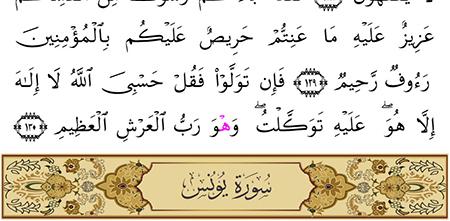 عَزِيزٌ عَلَيْهِ مَا عَنِتُّمْ حَرِيصٌ عَلَيْكُم بِالْمُؤْمِنِينَ
رَءُوفٌ رَّحِيمٌ ١٢٩ فَإِن تَوَلَّوْاْ فَقُلْ حَسْبِيَ اللَّهُ لَا إِلَٰهَ
إِلَّا هُوَۖ عَلَيْهِ تَوَكَّلْتُۖ وَهْوَ رَبُّ الْعَرْشِ الْعَظِيمِ ١٣٠
سُورَةُ يُونُسَ